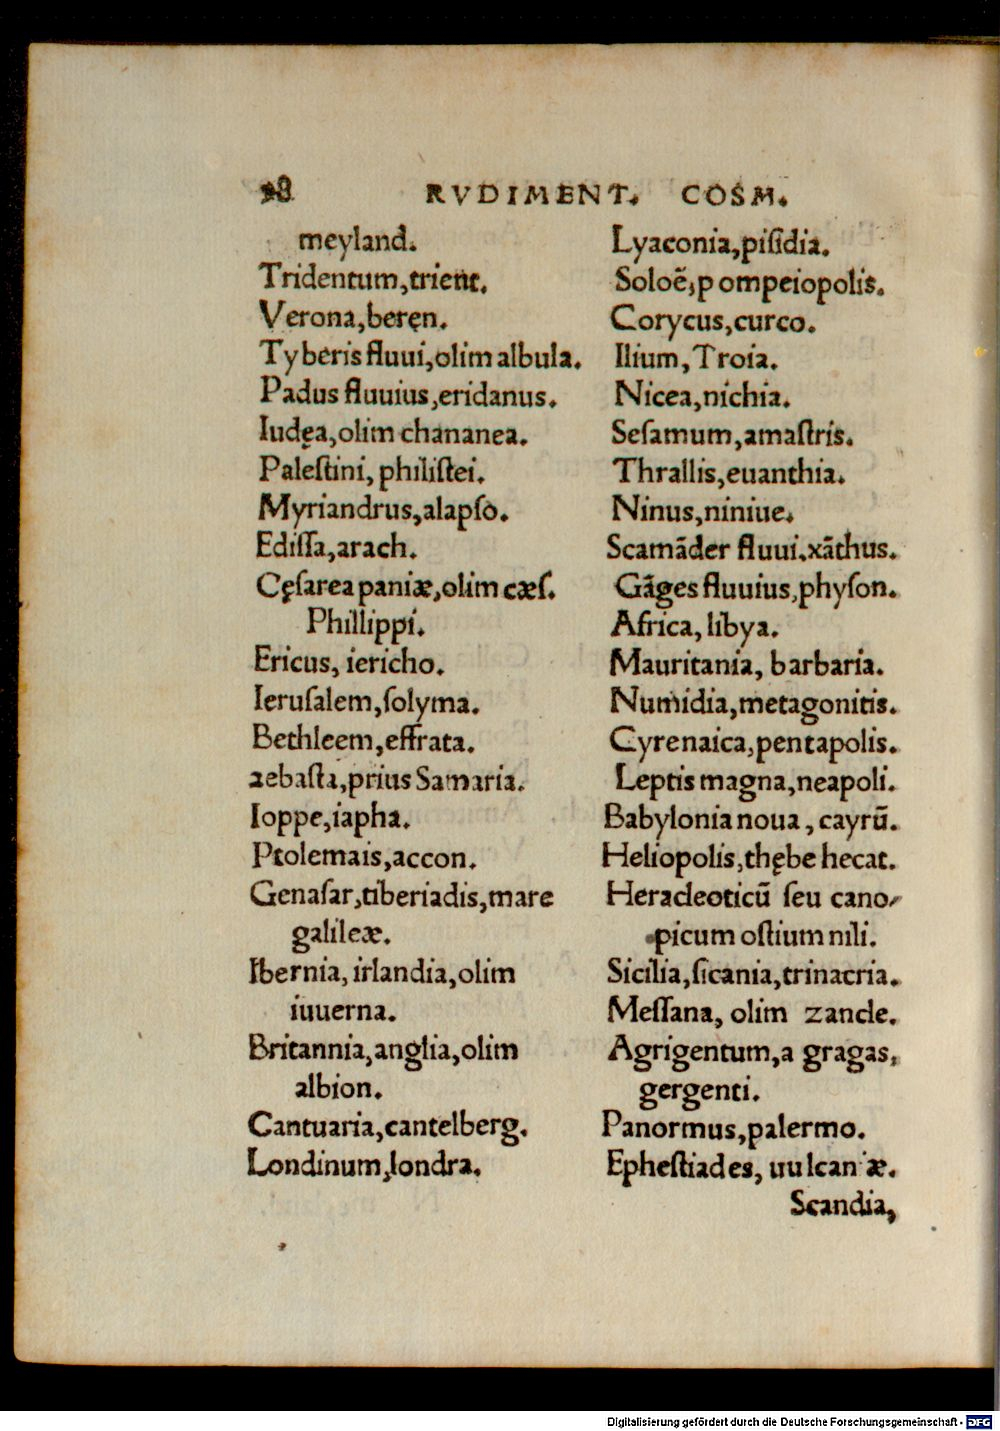 28 RVDIMENT. COSM.
meyland.
Tridentum,trient.
Verona,beręn.
Tyberis fluui,olim albula.
Padus fluuius,eridanus.
Iudęa,olim chananea.
Paleſtini, philiſtei.
Myriandrus,alapſo.
Ediſſa,arach.
Cęſarea paniæ,olim cæſ.
Phillippi.
Ericus, iericho.
Ieruſalem,ſolyma.
Bethleem,effrata.
aebaſta,prius Samaria.
Ioppe,iapha.
Ptolemais,accon.
Genaſar,tiberiadis,mare
galileæ.
Ibernia, irlandia,olim
iuuerna.
Britannia,anglia,olim
albion.
Cantuaria,cantelberg.
Londinum,londra.
Lyaconia,piſidia.
Soloẽ,p ompeiopolis.
Corycus,curco.
Ilium, Troia.
Nicea,nichia.
Seſamum,amaſtris.
Thrallis,euanthia.
Ninus,niniue.
Scamãder fluui.xãthus.
Gãges fluuius,phyſon.
Africa, libya.
Mauritania, barbaria.
Numidia,metagonitis.
Cyrenaica,pentapolis.
Leptis magna,neapoli.
Babylonia noua , cayrũ.
Heliopolis,thębe hecat.
Heracleoticũ ſeu cano-
picum oſtium nili.
Sicilia,ſicania,trinacria.
Meſſana, olim zancle.
Agrigentum,a gragas,
gergenti.
Panormus,palermo.
Epheſtiades, uulcan æ.
Scandia,
Digitalisierung gefördert durch die Deutsche Forschungsgemeinschaft - DFG